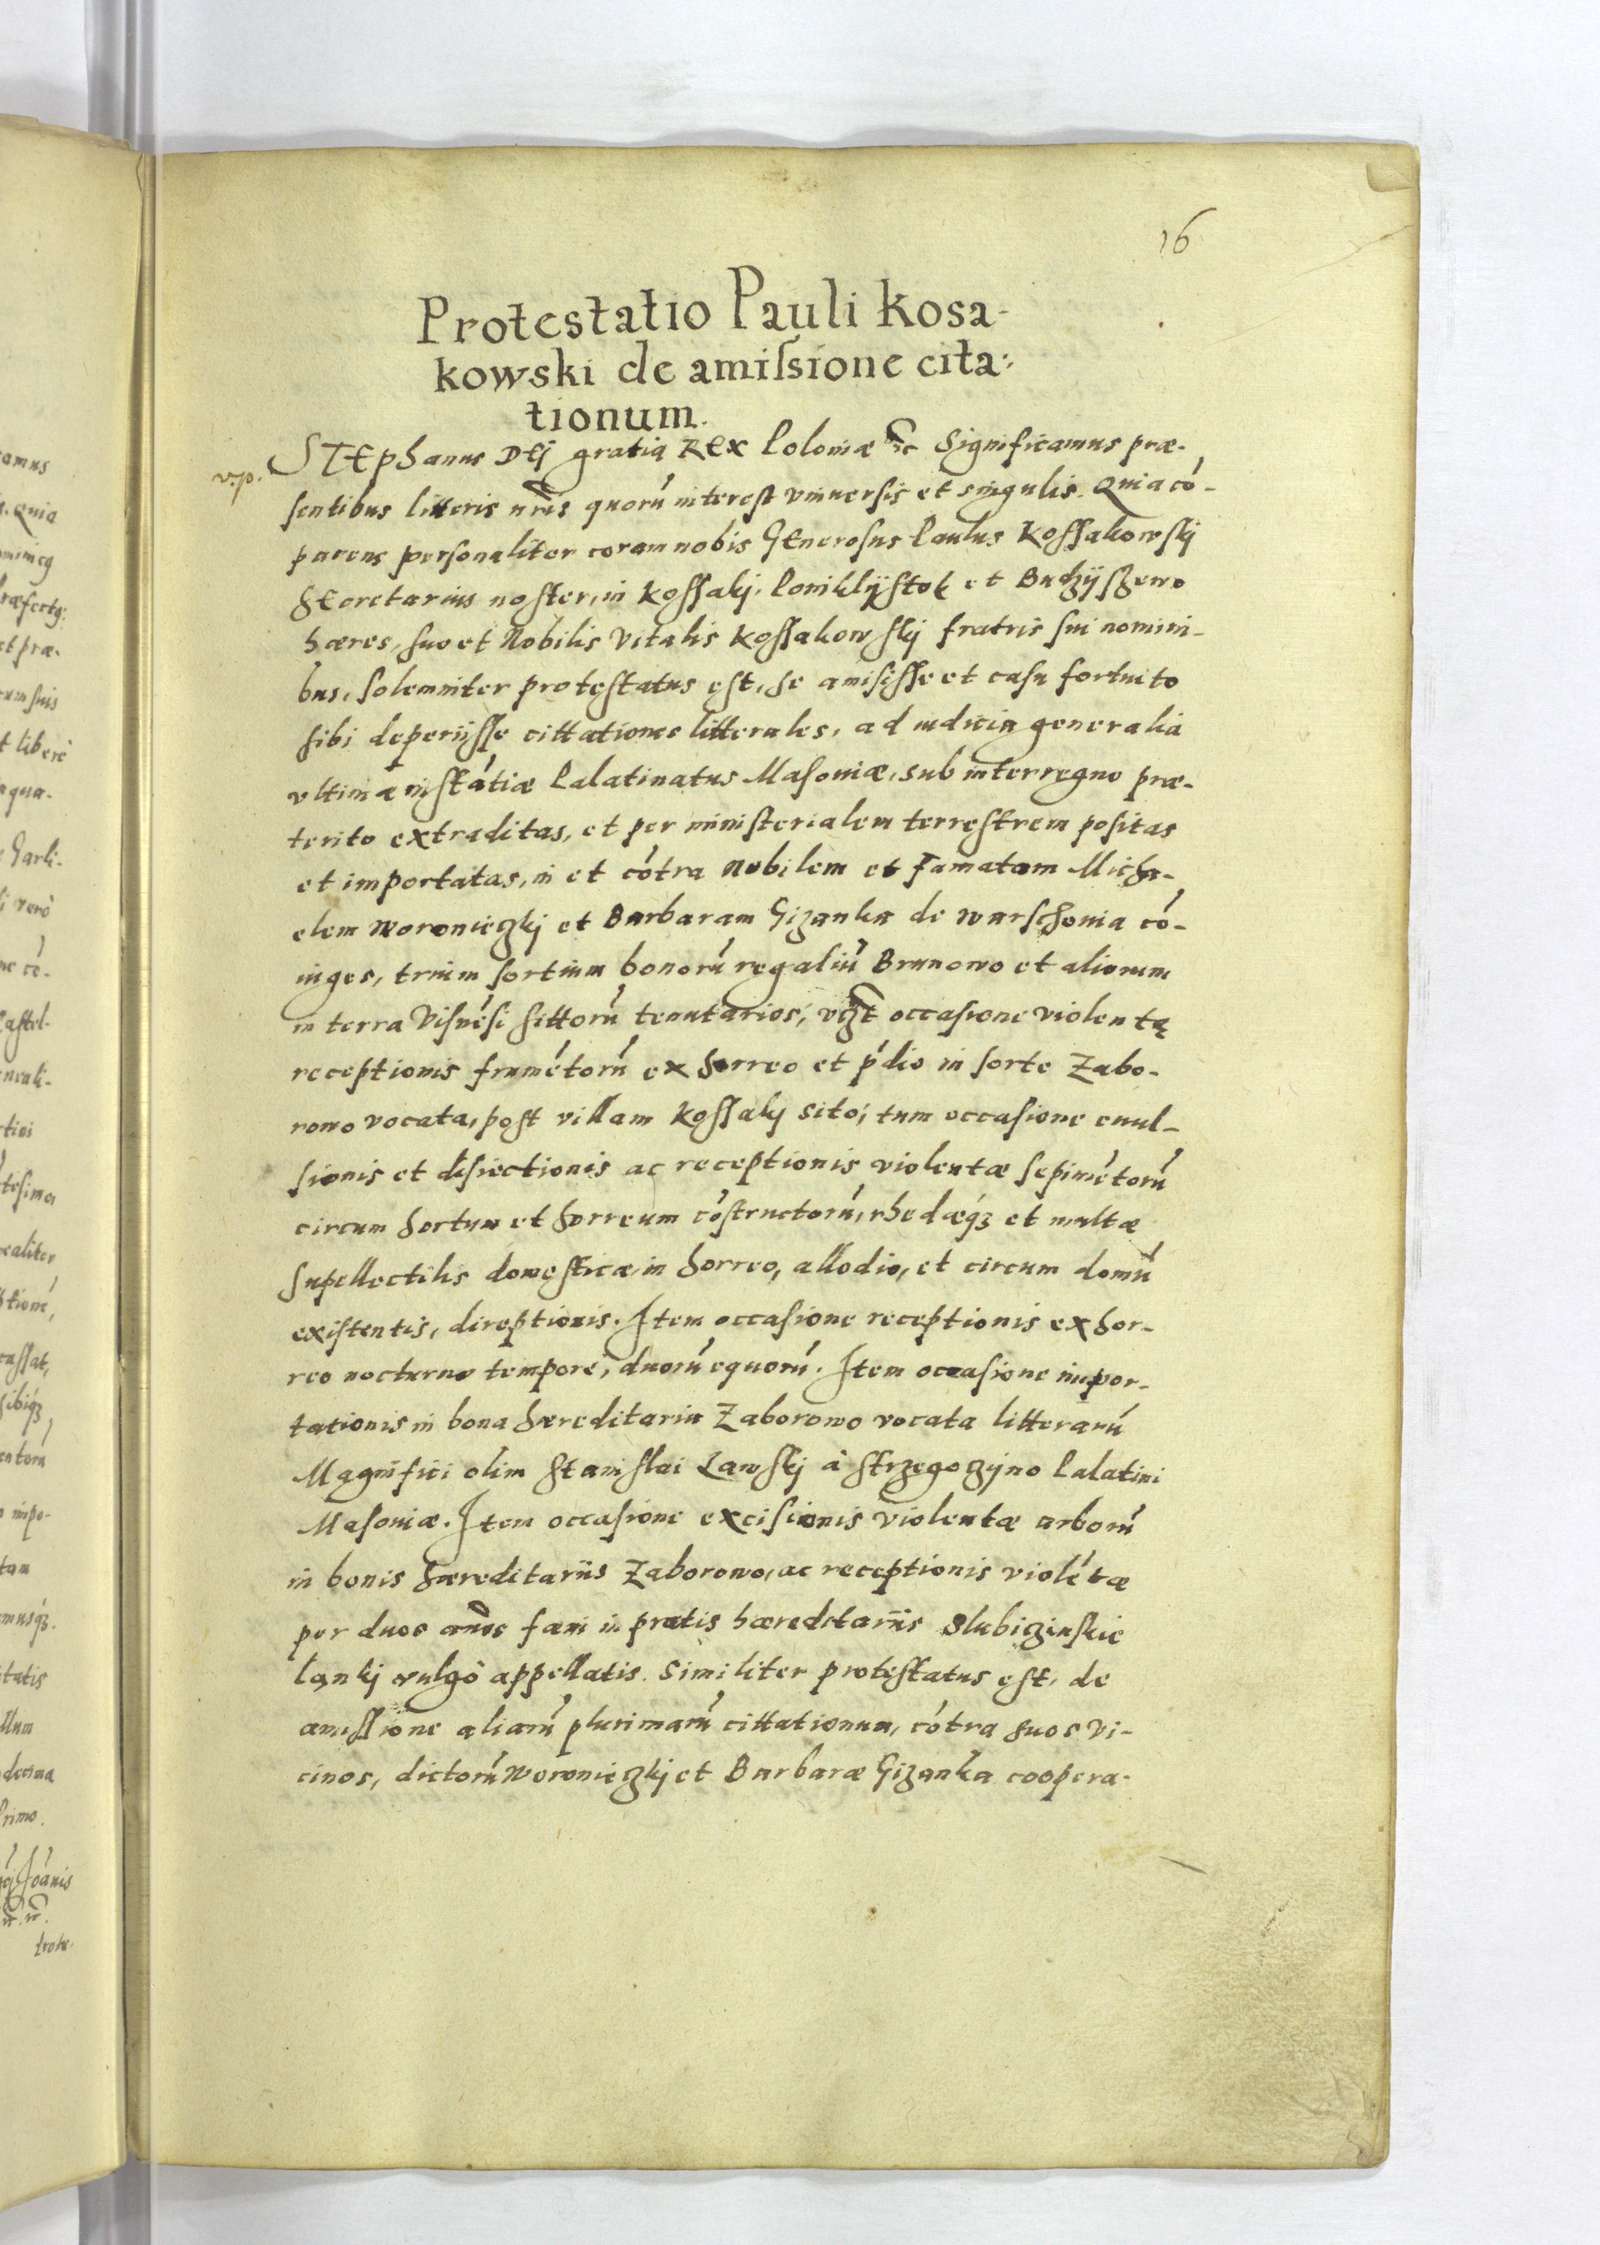 16
Protestatio Pauli Kosa-
kowski de amiſsione cita-
tionum.
v.p.
STEphanus DEj gratia REx Poloniæ &c Significamus præ-
sentibus litteris nr̃is quorú interest vniuersis et singulis. Quia có-
parens personaliter coram nobis GEnerosus Paulus Kossakowskj
SEcretarius noster, in Kossakj, Poniklÿstok et Buczÿszewo
hæres, suo et Nobilis Vitalis Kossakowskj fratris sui nomini-
bus, solemniter protestatus est, se amisisse et casu fortuito
sibi deperiisse cittationes litterales, ad iudicia generalia
vltimæ instátiæ Palatinatus Masouiæ, sub interregno præ-
terito extraditas, et per ministerialem terrestrem positas
et importatas, in et cótra Nobilem et Famatam Micha-
elem Woronieczkj et Barbaram Gizanka de Warschouia có-
iuges, trium sortium bonorú regaliú Brunowo et aliorum
in terra Visnési sittorú tenutarios, vz̃t occasione violentę
receptionis fruméntorú ex horreo et ṕdio in sorte Zabo-
rowo vocata, post villam Kossakj sito, tum occasione euul-
sionis et disiectionis ac receptionis violentæ sepiméntorú
circum hortum et horreum cóstructorú, rhedæq́ꝫ et multæ
supellectilis domesticæ in horreo, allodio, et circum domú
existentis, direptionis. Item occasione receptionis ex hor-
reo nocturno tempore, duorú equorú. Item occasione impor-
tationis in bona hæreditaria Zaborowo vocata litterarú
Magnifici olim Stanislai Lawskj à Strzegoczÿno Palatini
Masouiæ. Item occasione excisionis violentæ arború
in bonis hæreditariis Zaborowo, ac receptionis violétæ
per duos annos fæni in pratis hæreditariis Slubiczinskie
ląnkj vulgò appellatis. Similiter protestatus est, de
amissione aliarú plurimarú cittationum, cótra suos vi-
cinos, dictorú Woronieczkj et Barbaræ Gizanka coopera-